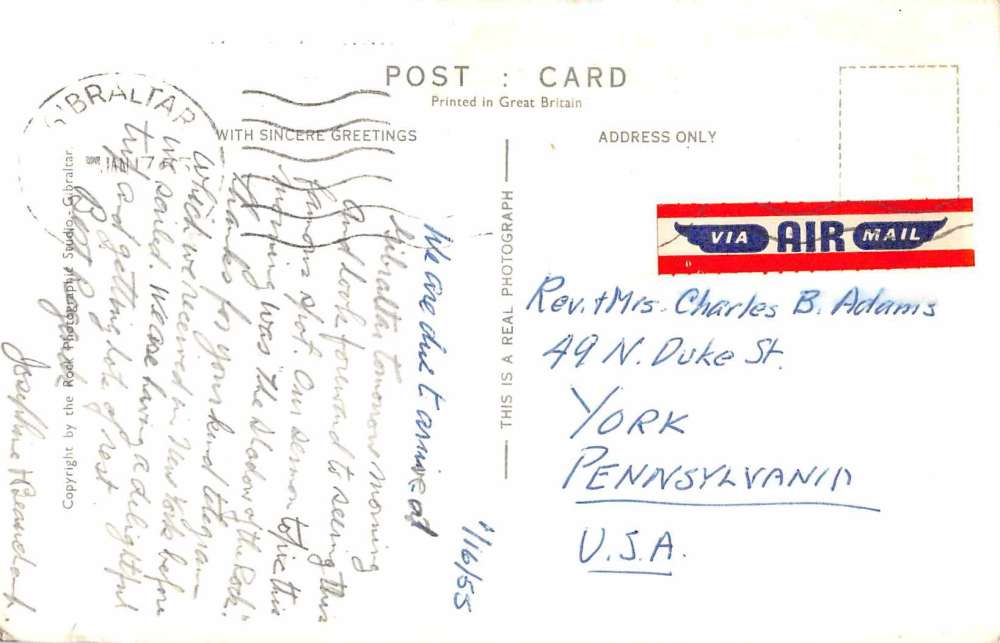 POST : CARD
Printed in Great Britain
WITH SINCERE GREETINGS
ADDRESS ONLY
GIBRALTAR
JAN 17
VIA AIR MAIL
1/16/55
We are due to arrive at
Gibraltar tomorrow morning
and look forward to seeing this
famous spot. Our sermon topic this
morning was "The Shadow of the Rock".
Thanks for your kind telegram
which we received in New York before
we sailed. We are having a delightful
trip and getting lots of rest
Best Regards
Josephine &
Rev. + Mrs. Charles B. Adams
49 N. Duke St.
YORK
PENNSYLVANIA
U.S.A.
THIS IS A REAL PHOTOGRAPH
Copyright by the Rock Photographic Studio - Gibraltar.